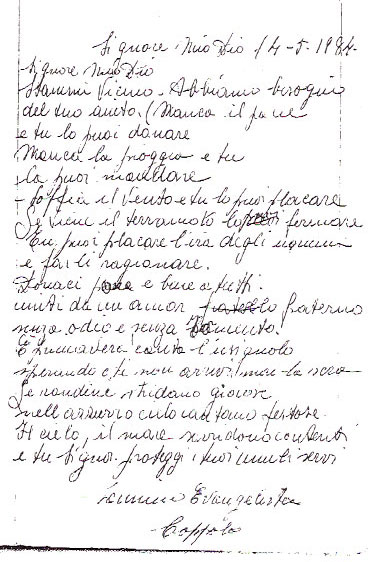 Signore Mio Dio 14-5-1984-
Signore Mio Dio
Stammi Vicino - Abbiamo bisogno
del tuo aiuto. (Manca il pane
e tu lo puoi donare
Manca la pioggia e tu
la puoi mandare
- Soffia il Vento e tu lo puoi placare
Se viene il terramoto lo puoi fermare
Tu puoi placare l'ira degli uomini
e farli ragionare.
Donaci pace e bene a tutti.
uniti da un amor fraterno
senza odio e senza
È primavera canta l'usignolo
sperando che non arrivi mai la sera
Le rondine stridano gioiose
nell azzurro cielo cantano festose.
Il cielo, il mare rendono contenti
e tu Signor proteggi i tuoi umili servi
Evangelista
Coppola